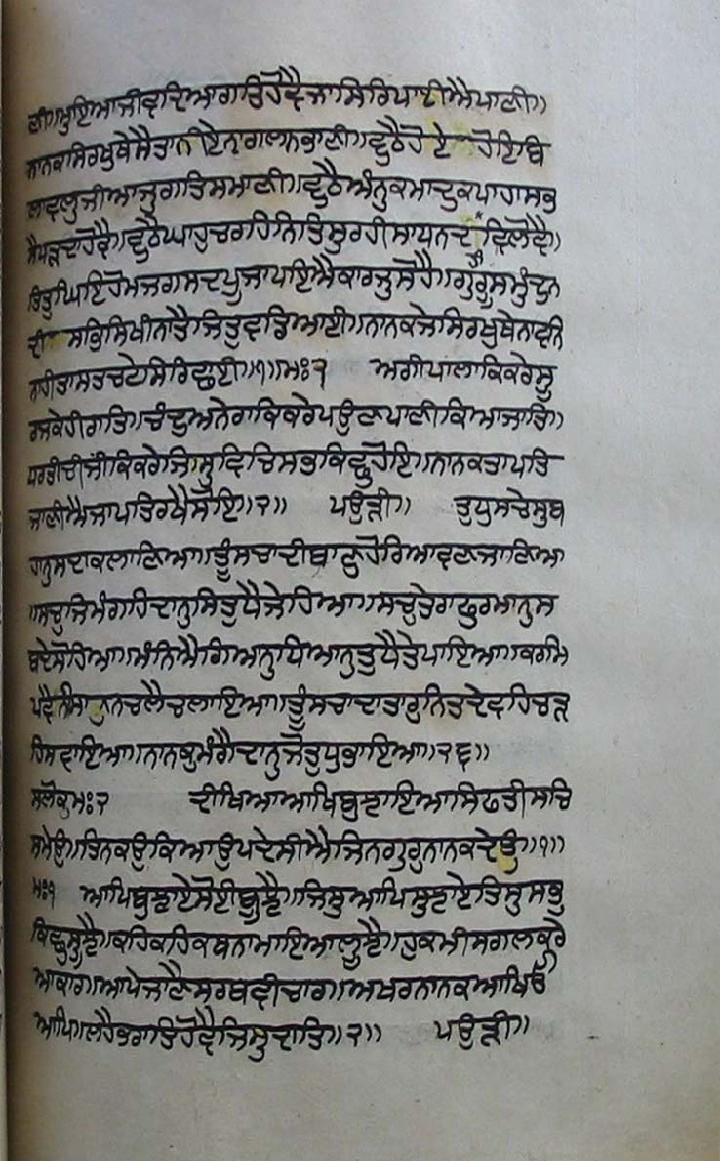 ਣੀ॥ਮੁਇਆਜੀਵਦਿਆਗਤਿਹੋਵੈਜਾਸਿਰਿਪਾਈਐਪਾਣੀ॥
ਨਾਨਕਸਿਰਖੁਥੇਸੈਤਾਨੀਏਨਾਗਲਨਭਾਣੀ॥ਵੁਠੈਹੋਏ ਹੋਇਬਿ
ਲਾਵਲੁਜੀਆਜੁਗਤਿਸਮਾਣੀ॥ਵੁਠੈਅੰਨੁਕਮਾਦੁਕਪਾਹਾਸਭ
ਸੈਪੜਦਾਹੋਵੈ॥ਵੁਠੈਘਾਹੁਚਰਹਿਨਿਤਿਸੁਰਹੀਸਾਧਨਦਹੀਵਿਲੋਵੈ॥
ਤਿਤੁਘਿਇਹੋਮਜਗਸਦਪੂਜਾਪਇਐਕਾਰਜੁਸੋਹੈ॥ਗੁਰੂਸਮੁੰਦੁਨ
ਦੀ ਸਭਿਸਿਖੀਨਾਤੈਜਿਤੁਵਡਿਆਈ॥ਨਾਨਕਜੇਸਿਰਖੁਥੇਨਾਵਨਿ
ਨਾਹੀਤਾਸਤਚਟੇਸਿਰਿਛਾਈ॥੧॥ਮਃ੨ ਅਗੀਪਾਲਾਕਿਕਰੇਸੂ
ਰਜਕੇਹੀਰਾਤਿ॥ਚੰਦੁਅਨੇਰਾਕਿਕਰੇਪਉਣਪਾਣੀਕਿਆਜਾਤਿ॥
ਧਰਤੀਚੀਜੀਕਿਕਰੇਜਿਸੁਵਿਚਿਸਭਕਿਛੁਹੋਇ॥ਨਾਨਕਤਾਪਤਿ
ਜਾਣੀਐਜਾਪਤਿਰਖੈਸੋਇ॥੨॥ ਪਉੜੀ॥ ਤੁਧੁਸਚੇਸੁਬ
ਹਾਨੁਸਦਾਕਲਾਣਿਆ॥ਤੂੰਸਚਾਦੀਬਾਣੁਹੋਰਿਆਵਣਜਾਣਿਆ
॥ਸਚੁਜਿਮੰਗਹਿਦਾਨੁਸਿਤੁਧੈਜੇਹਿਆ॥ਸਚੁਤੇਰਾਫੁਰਮਾਨੁਸ
ਬਦੇਸੋਹਿਆ॥ਮੰਨਿਐਗਿਆਨੁਧਿਆਨੁਤੁਧੈਤੇਪਾਇਆ॥ਕਰਮਿ
ਪਵੈਨੀਸਾਨੁਨਚਲੈਚਲਾਇਆ॥ਤੂੰਸਚਾਦਾਤਾਰੁਨਿਤਦੇਵਹਿਚੜ
ਹਿਸਵਾਇਆ॥ਨਾਨਕੁਮੰਗੈਦਾਨੁਜੋਤੁਧੁਭਾਇਆ॥੨੬॥
ਸਲੋਕੁਮਃ੨ ਦੀਖਿਆਆਖਿਬੁਝਾਇਆਸਿਫਤੀਸਚਿ
ਸਮੇਉ॥ਤਿਨਕਉਕਿਆਉਪਦੇਸੀਐਜਿਨਗੁਰੁਨਾਨਕਦੇਉ॥੧॥
ਮਃ੧ ਆਪਿਬੁਝਾਏਸੋਈਬੂਝੈ॥ਜਿਸੁਆਪਿਸੁਝਾਏਤਿਸੁਸਭੁ
ਕਿਛੁਸੂਝੈ॥ਕਹਿਕਹਿਕਥਨਾਮਾਇਆਲੂਝੈ॥ਹੁਕਮੀਸਗਲਕਰੇ
ਆਕਾਰ॥ਆਪੇਜਾਣੈਸਰਬਵੀਚਾਰ॥ਅਖਰਨਾਨਕਆਖਿਓ
ਆਪਿ॥ਲਹੈਭਰਾਤਿਹੋਵੈਜਿਸੁਦਾਤਿ॥੨॥ ਪਉੜੀ॥